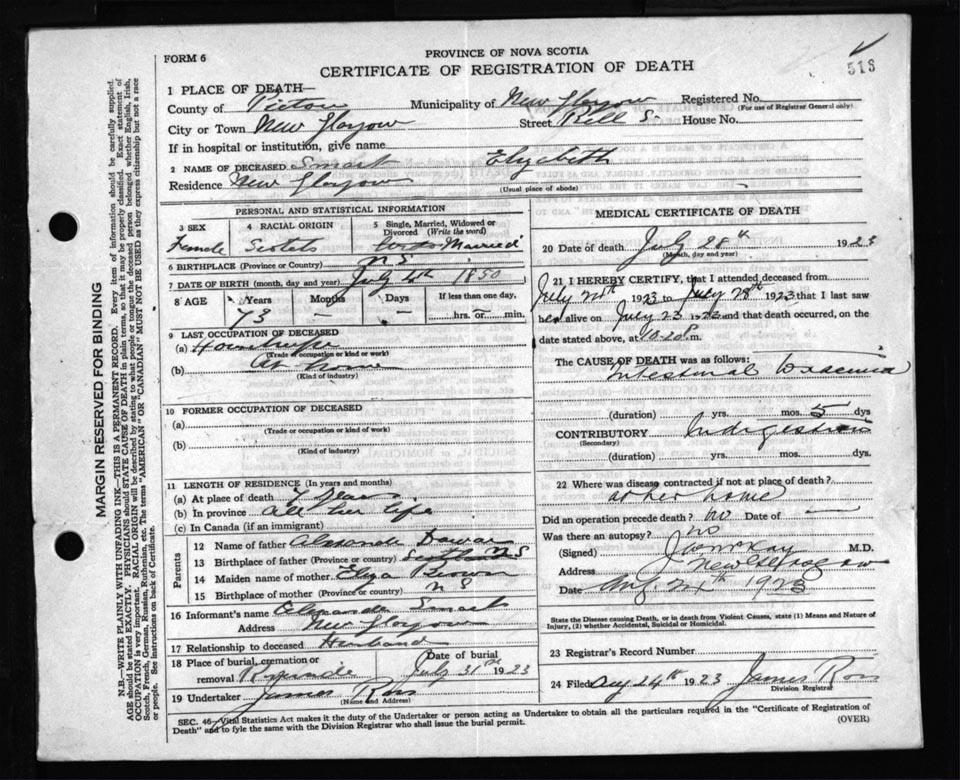 FORM 6
PROVINCE OF NOVA SCOTIA
CERTIFICATE OF REGISTRATION OF DEATH
513
1 PLACE OF DEATH—
County of Pictou Municipality of New Glasgow Registered No.
(For use of Registrar General only)
City or Town New Glasgow Street Bell S. House No.
If in hospital or institution, give name
2 NAME OF DECEASED Smart Elizabeth
Residence New Glasgow
(Usual place of abode)
PERSONAL AND STATISTICAL INFORMATION
3 SEX 4 RACIAL ORIGIN 5 Single, Married, Widowed or Divorced (Write the word)
Female Scotch Married
6 BIRTHPLACE (Province or Country) N S
7 DATE OF BIRTH (month, day and year) July 4th 1850
8 AGE Years Months Days If less than one day,
73 — — hrs. or — min.
9 LAST OCCUPATION OF DECEASED
(a)
(Trade or occupation or kind of work)
(b) At Home
(Kind of industry)
10 FORMER OCCUPATION OF DECEASED
(a)
(Trade or occupation or kind of work)
(b)
(Kind of industry)
11 LENGTH OF RESIDENCE (In years and months)
(a) At place of death
(b) In province all her life
(c) In Canada (if an immigrant)
Parents
12 Name of father
13 Birthplace of father (Province or country) N S
14 Maiden name of mother Eliza Brown
15 Birthplace of mother (Province or country) N S
16 Informant's name Smart
Address New Glasgow
17 Relationship to deceased Husband
18 Place of burial, cremation or removal Date of burial
Riverside July 31st 1923
19 Undertaker James Ross
(Name and Address)
MEDICAL CERTIFICATE OF DEATH
20 Date of death July 28th 1923
(Month, day and year)
21 I HEREBY CERTIFY, that I attended deceased from
July 1923 to July 28th 1923 that I last saw
her alive on July 23 1923 and that death occurred, on
date stated above, at 10.20 P.m.
The CAUSE OF DEATH was as follows:
Intestinal
(duration) yrs. mos. 5 dys
CONTRIBUTORY Indigestion
(Secondary)
(duration) yrs. mos. dys.
22 Where was disease contracted if not at place of death?
at her home
Did an operation precede death? no Date of —
Was there an autopsy? no
(Signed) J W McKay M.D.
Address New Glasgow
Date Aug 24th 1923
State the Disease causing Death, or in death from Violent Causes, state (1) Means and Nature of
Injury, (2) whether Accidental, Suicidal or Homicidal.
23 Registrar's Record Number
24 Filed Aug 24th 1923 James Ross
Division Registrar
SEC. 46—Vital Statistics Act makes it the duty of the Undertaker or person acting as Undertaker to obtain all the particulars required in the "Certificate of Registration of
Death" and to fyle the same with the Division Registrar who shall issue the burial permit. (OVER)
MARGIN RESERVED FOR BINDING
N.B.—WRITE PLAINLY WITH UNFADING INK—THIS IS A PERMANENT RECORD. Every item of information should be carefully supplied.
AGE should be stated EXACTLY. PHYSICIANS should STATE CAUSE OF DEATH in plain terms, so that it may be properly classified. Exact statement of
OCCUPATION is very important. RACIAL ORIGIN will be described by stating to what people or tongue the deceased person belonged, whether English, Irish,
Scotch, French, German, Russian, Ruthenian, etc. The terms "AMERICAN" OR "CANADIAN" MUST NOT BE USED as they express citizenship but not a race
or people. See instructions on back of Certificate.